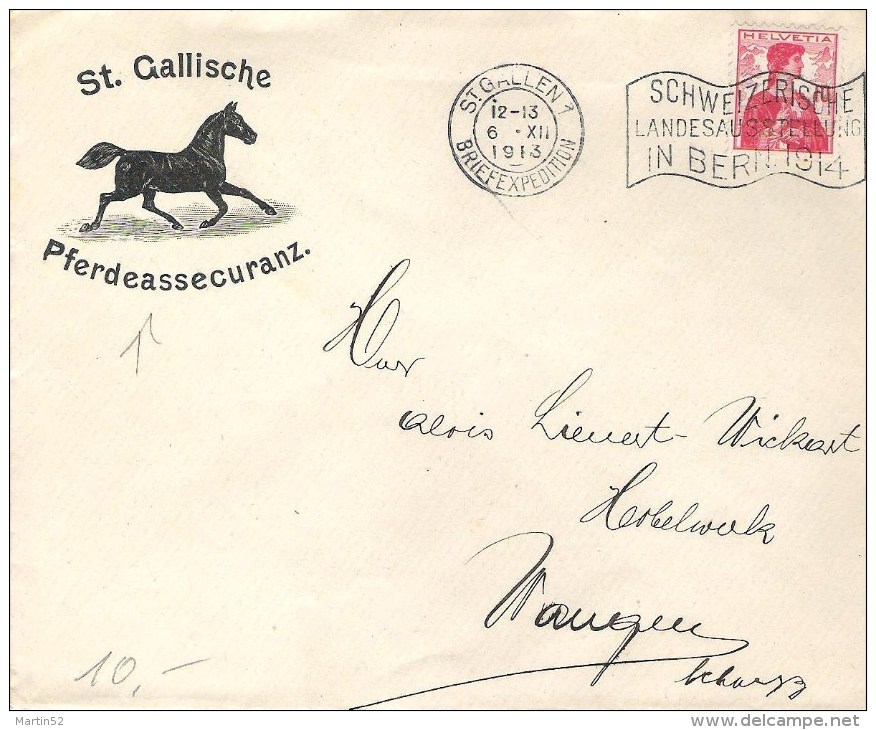 St. Gallische
Pferdeassecuranz.
ST. GALLEN 1
12-13
6 · XII
1913
BRIEFEXPEDITION
HELVETIA
SCHWEIZERISCHE
LANDESAUSSTELLUNG
IN BERN 1914
Herr
Alois Lienert-Wickart
Hobelwerk
Wangen
Schwyz
10,-
Martin52
delcampe.net